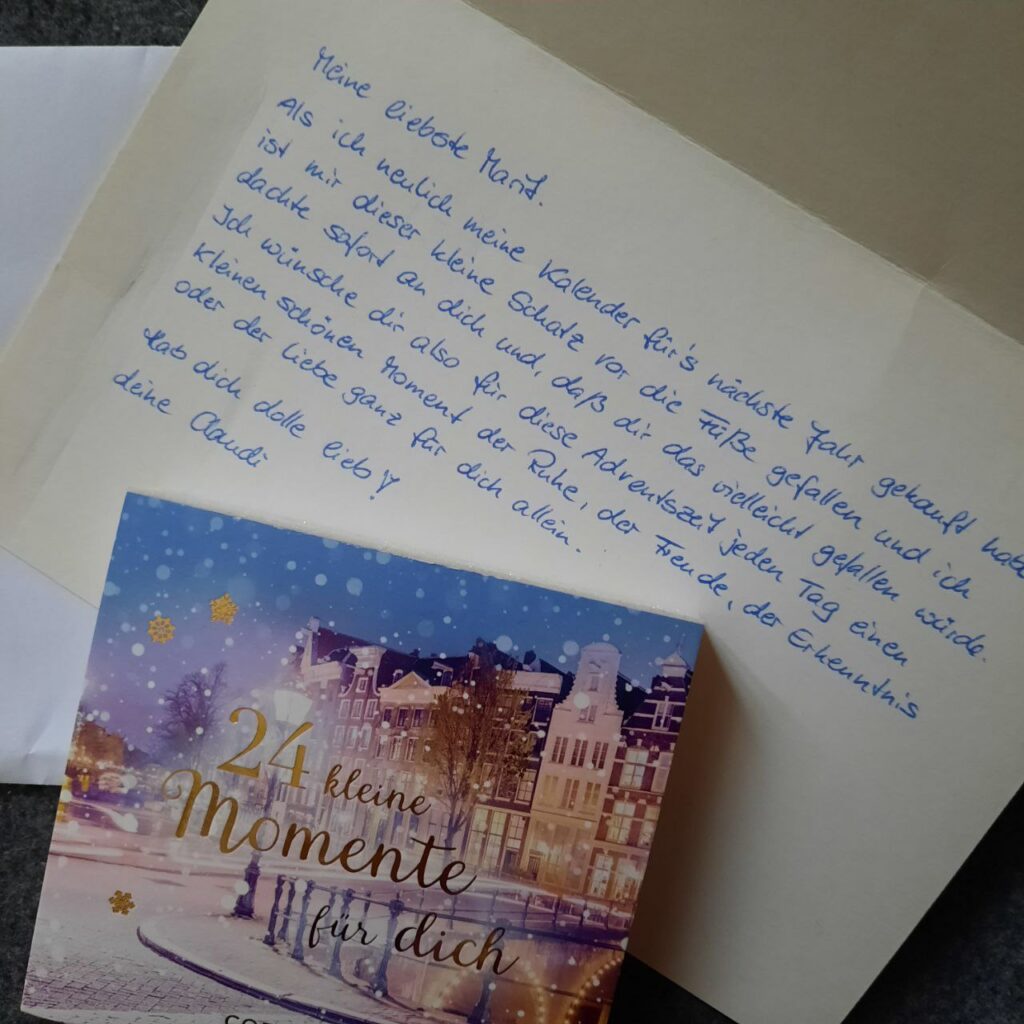 Meine liebste Marit.
Als ich neulich meine Kalender für's nächste Jahr gekauft habe
ist mir dieser kleine Schatz vor die Füße gefallen und ich
dachte sofort an dich und, daß dir das vielleicht gefallen würde.
Ich wünsche dir also für diese Adventszeit jeden Tag einen
kleinen schönen Moment der Ruhe, der Freude, der Erkenntnis
oder der Liebe ganz für dich allein.
Hab dich dolle lieb!
deine Claudi
24 kleine
Momente
für dich